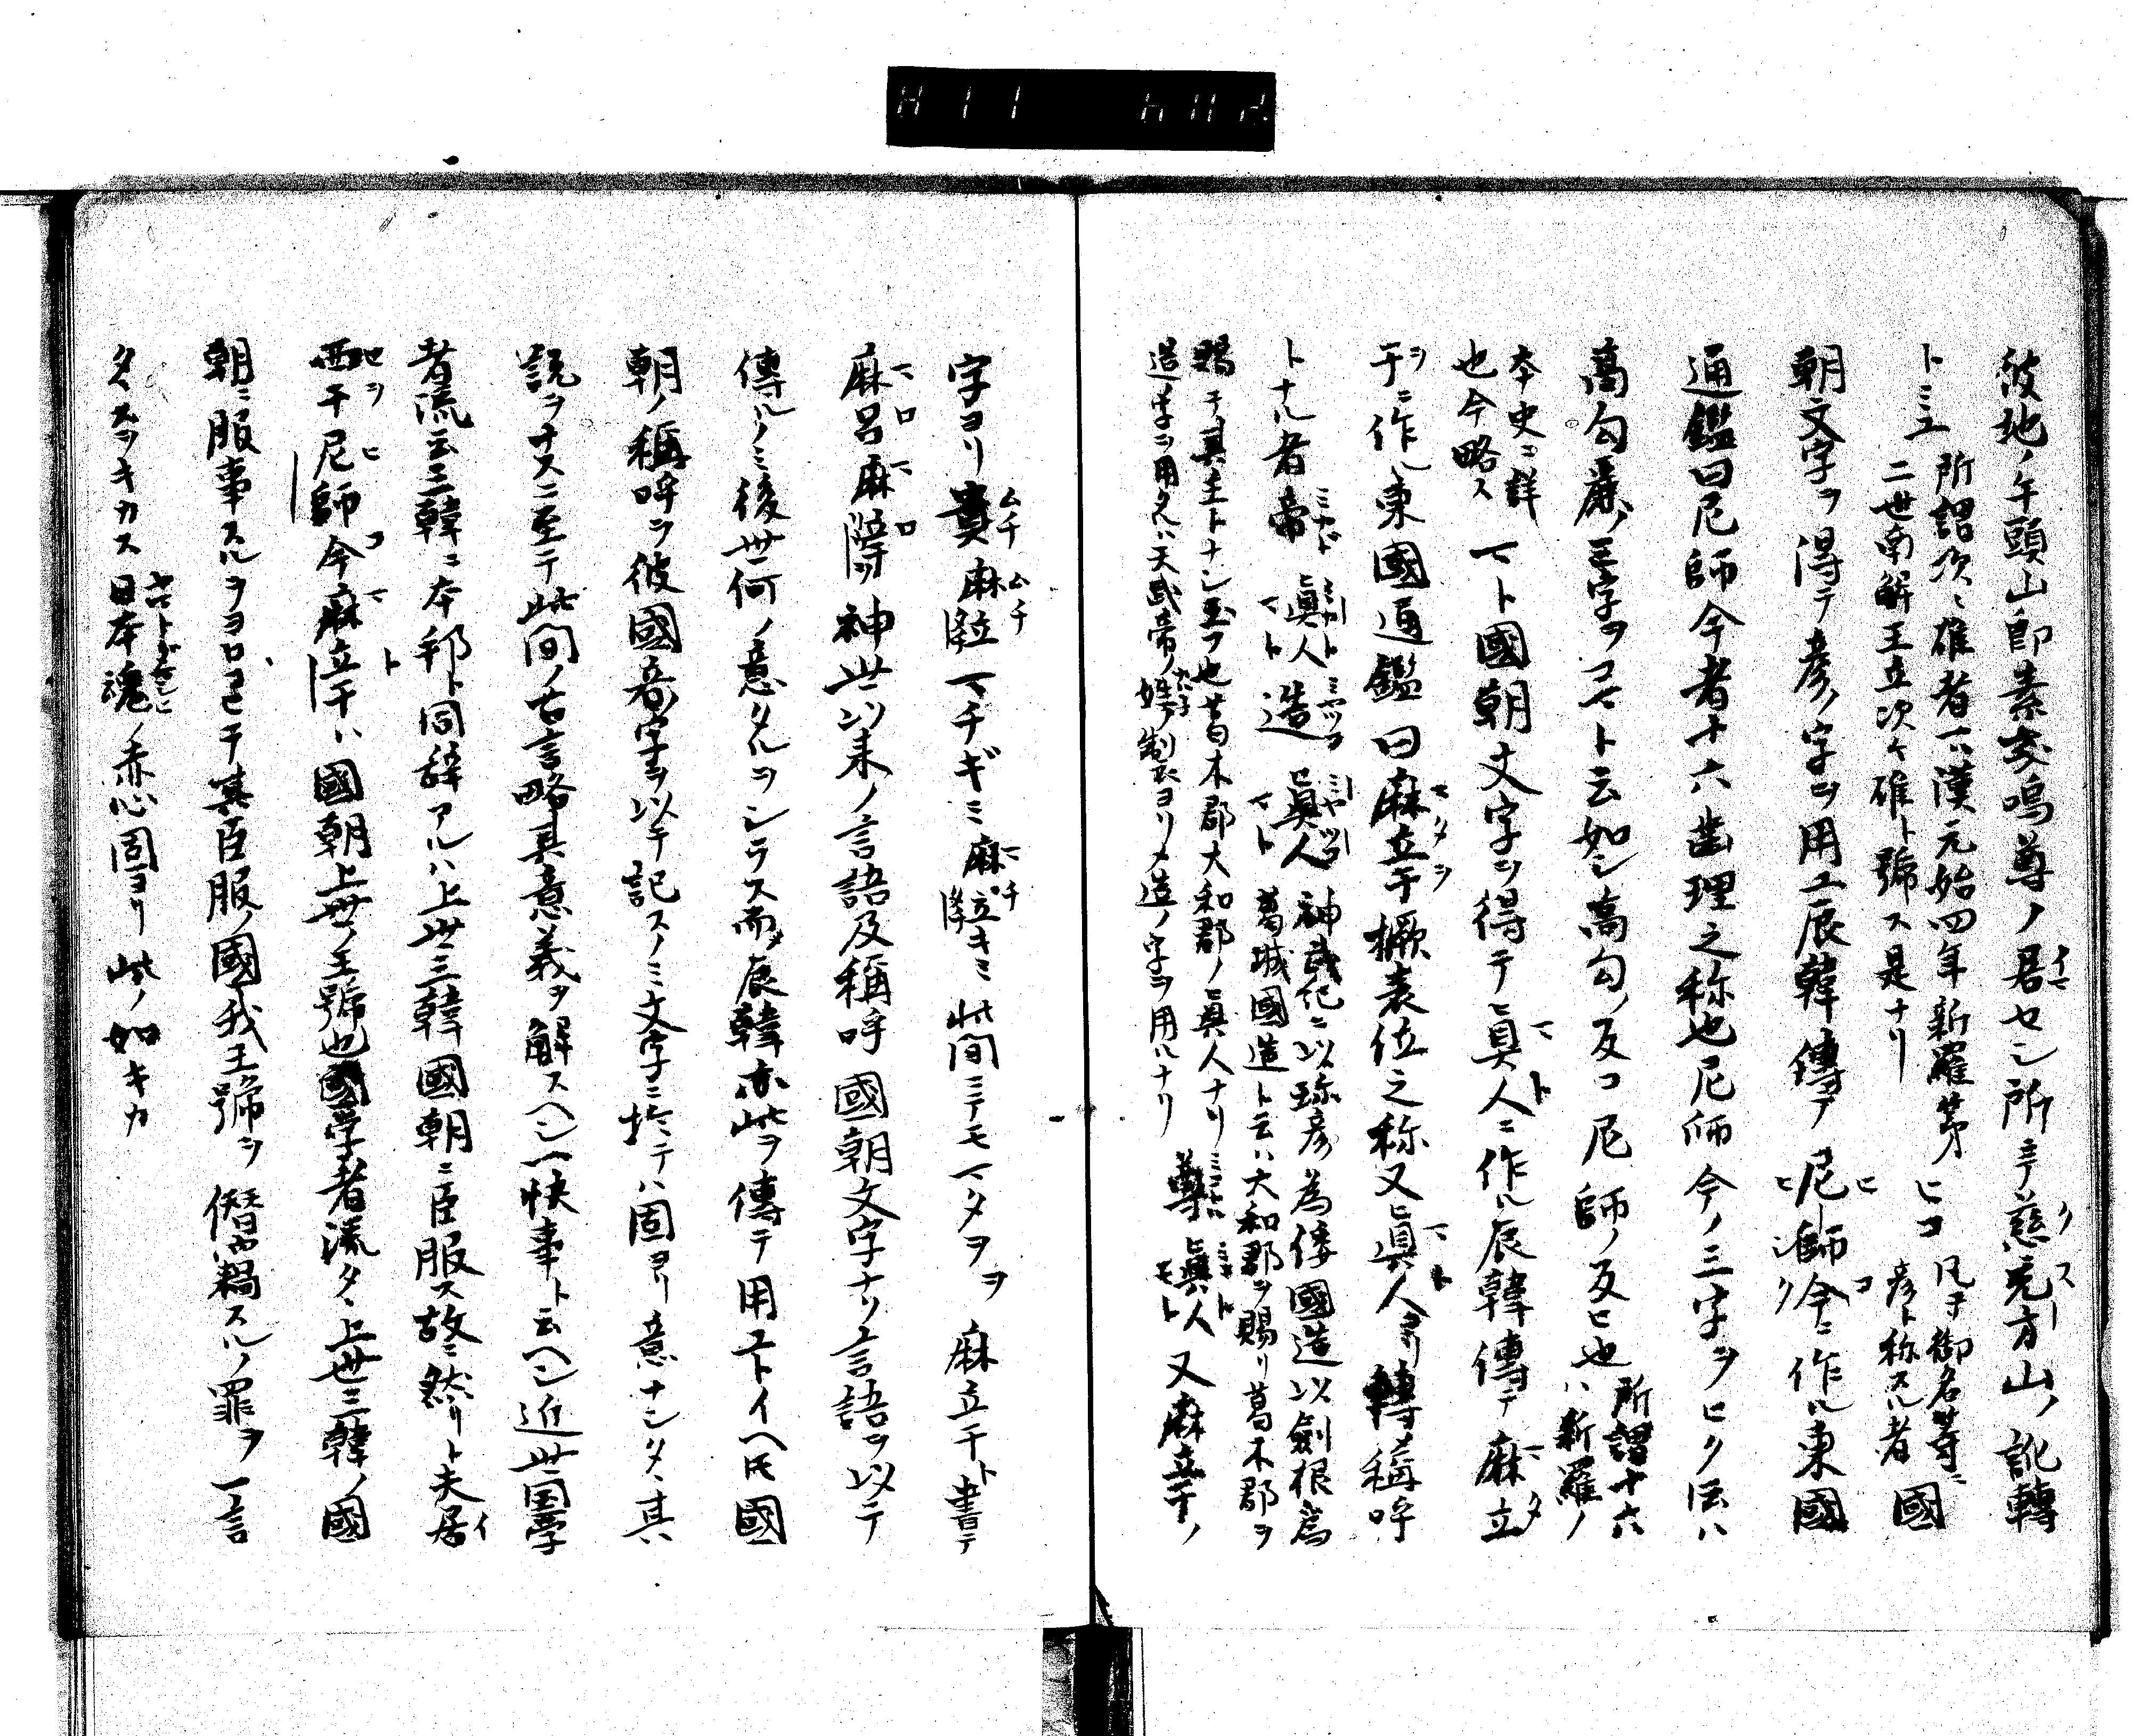 彼地ノ牛頭山即素戔嗚尊ノ居セシ所ニテ慈充方山ノ訛轉
トミユ 所謂次々雄者ハ漢元始四年新羅第
二世南解王立次々雄ト號ス是ナリ ヒコ 凡于御名等ニ
彦ト称スル者 國
朝文字ヲ得テ彦ノ字ヲ用エ辰韓傳テ尼師今ニ作ル東國
通鑑曰尼師今者十六歯理之称也尼師今ノ三字ヲヒク
高勾麗ノ王字ヲコマト云如シ高勾ノ反コ尼師ノ反ヒ也 所謂十六
ハ新羅ノ
本史ニ詳
也今略ス マト國朝文字ヲ得テ眞人ニ作ル辰韓傳テ麻立
干ニ作ル東國通鑑曰麻立干橛表位之称又眞人ヨリ轉稱呼
トナル者帝 眞人 造 眞人 神武紀ニ以珍彦為倭國造以劍根爲
葛城國造ト云ハ大和郡ヲ賜リ葛木郡ヲ
賜テ其主トナシ玉フ也葛木郡大和郡ノ眞人ナリ
造ノ字ヲ用タルハ天武帝ノ姓ノ制ヨリメ造ノ字ヲ用ルナリ 尊 眞人 又麻立干ノ
字ヨリ貴 麻 マチギミ 麻 キミ 此間ニテモマタヲヲ 麻立干ト書テ
麻呂麻 神世以来ノ言語及稱呼國朝文字ナリ言語ヲ以テ
傳ルノミ後世何ノ意タルヲシラス而メ辰韓亦此ヲ傳テ用ユトイヘ𪜈國
朝ノ稱呼ヲ彼國音ノ字ヲ以テ記スノミ文字ニ於テハ固ヨリ意ナシタヽ其
説ヲナスニ至テ此間ノ古言略其意義ヲ解スヘシ一快事ト云ヘシ近世国学
者流云三韓ニ本邦ト同辭アルハ上世三韓國朝ニ臣服ス故ニ然リト夫居
西干尼師今麻立干ハ國朝上世ノ王號也國学者流タヽ上世三韓ノ國
朝ニ服事スルヲヨロコヒテ其臣服ノ國我王號ヲ僭竊スルノ罪ヲ一言
タヽスヲキカス日本魂ノ赤心固ヨリ此ノ如キカ